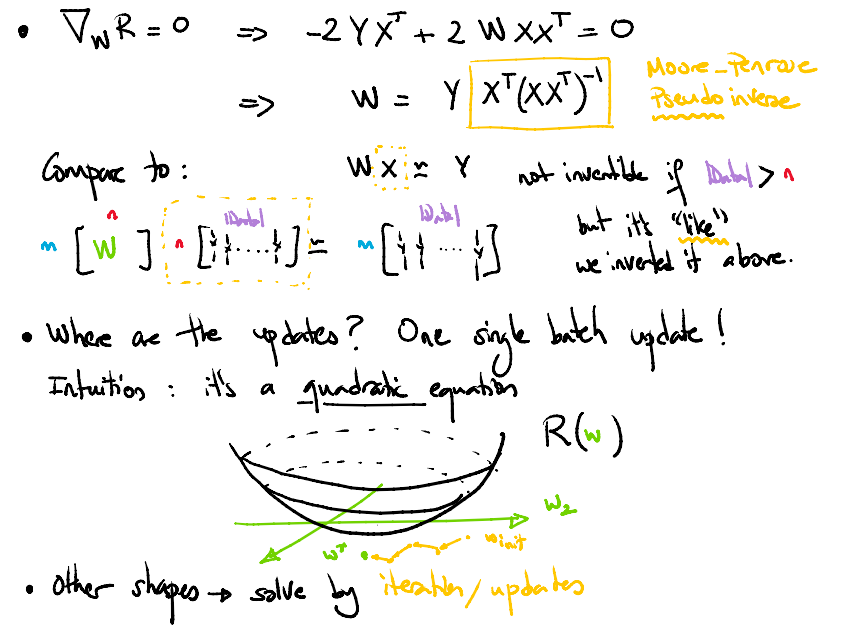 • ∇_W R = 0 ⇒ -2 Y Xᵀ + 2 W X Xᵀ = 0
⇒ W = Y Xᵀ(XXᵀ)⁻¹
Moore-Penrose
Pseudo inverse
Compare to: W X ≃ Y
not invertible if |Data| > n
but it's "like"
we inverted it above.
n
|Data|
|Data|
m [ W ] n [ .... ] ≃ m [ ... ]
• Where are the updates? One single batch update!
Intuition: it's a quadratic equation
R(w)
w₂
w* w init
• Other shapes → solve by iteration/updates